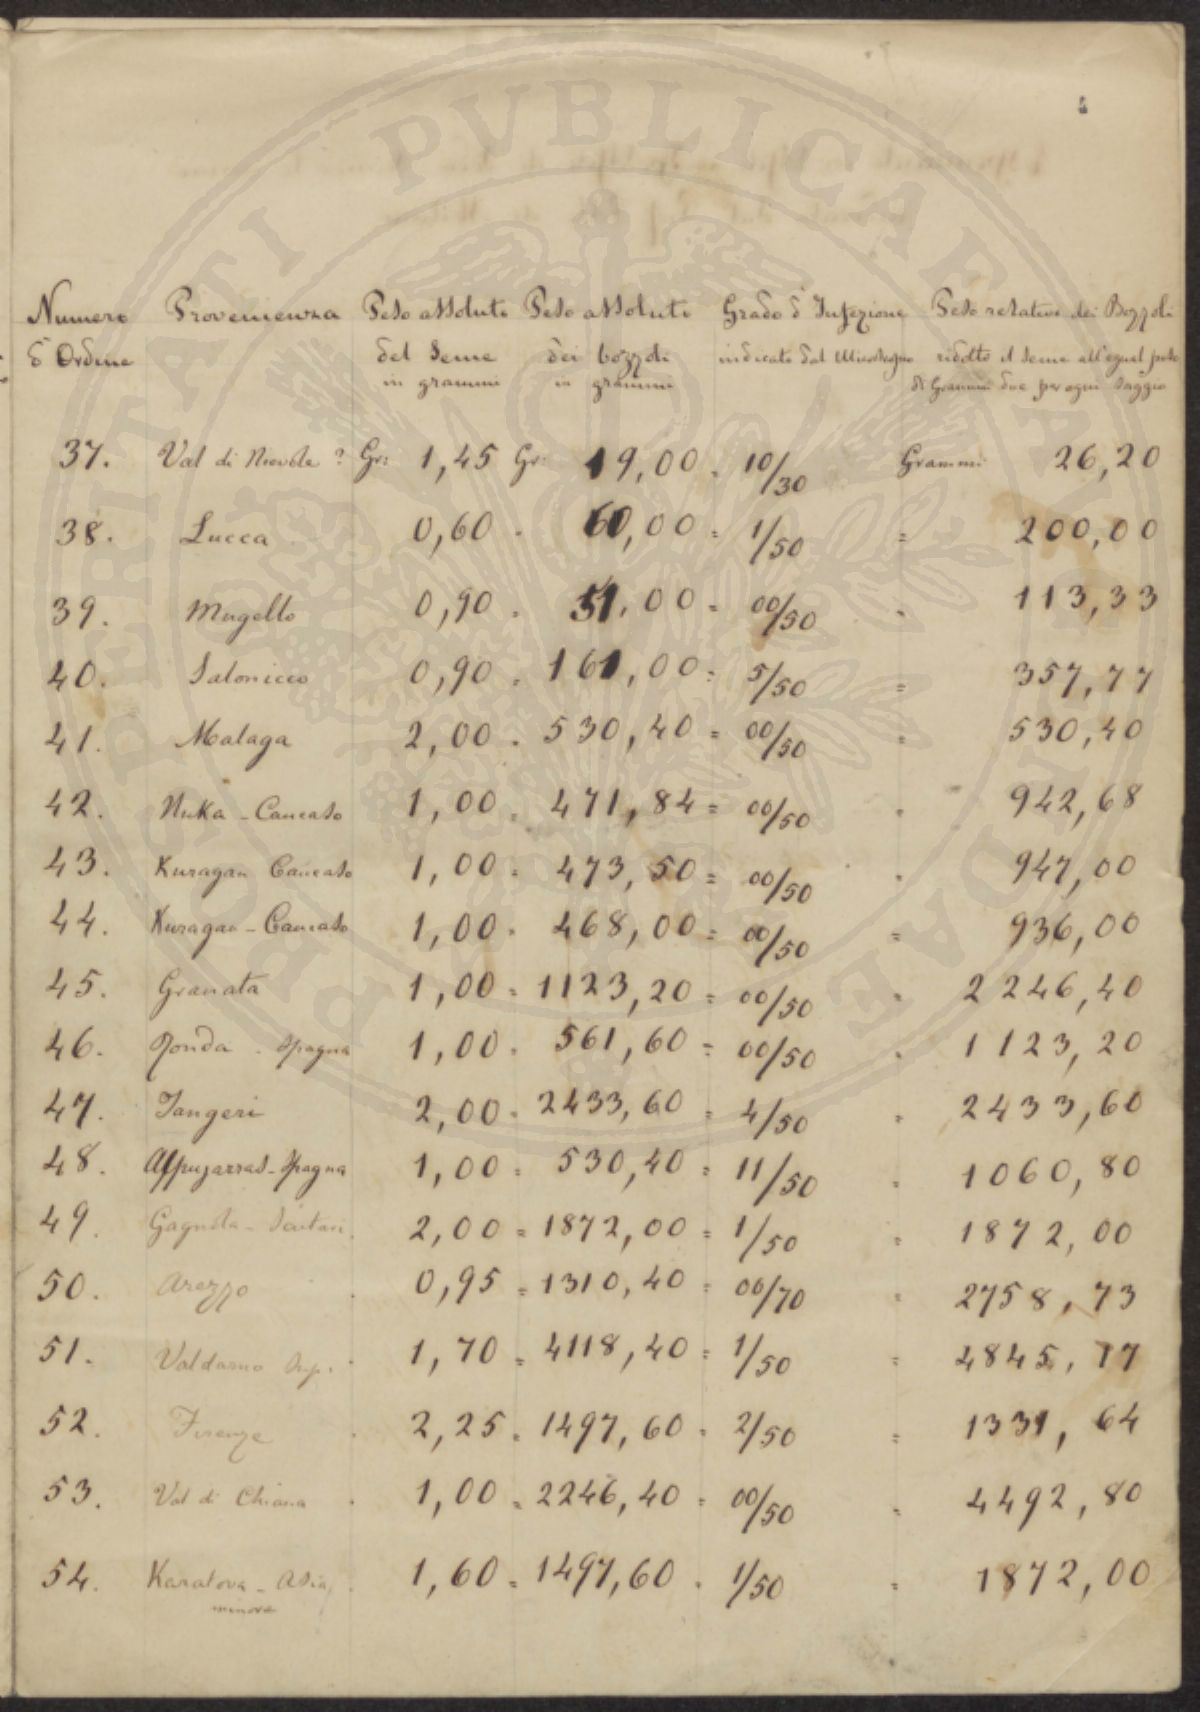 PROSPERITATI PVBLICAE AVGENDAE
Numero Provenienza Peso assoluto Peso assoluto Grado d'Infezione Peso relativo dei Bozzoli
d'Ordine del Seme dei bozzoli indicato dal Microscopio ridotto il seme all'egual peso
in grammi in grammi di Grammi due per ogni Saggio
37. Val di Nievole ? Gr: 1,45 Gr: 19,00 = 10/30 Grammi 26,20
38. Lucca 0,60 = 60,00 = 1/50 = 200,00
39. Mugello 0,90 = 51,00 = 00/50 = 113,33
40. Salonicco 0,90 = 161,00 = 5/50 = 357,77
41. Malaga 2,00 = 530,40 = 00/50 = 530,40
42. Nuka - Caucaso 1,00 = 471,84 = 00/50 = 942,68
43. Kuragan Caucaso 1,00 = 473,50 = 00/50 = 947,00
44. Kuragan - Caucaso 1,00 = 468,00 = 00/50 = 936,00
45. Granata 1,00 = 1123,20 = 00/50 = 2246,40
46. Ronda - Spagna 1,00 = 561,60 = 00/50 = 1123,20
47. Tangeri 2,00 = 2433,60 = 4/50 = 2433,60
48. Alpujarras - Spagna 1,00 = 530,40 = 11/50 = 1060,80
49. Gagnola - Scutari 2,00 = 1872,00 = 1/50 = 1872,00
50. Arezzo 0,95 = 1310,40 = 00/70 = 2758,73
51. Valdarno Sup. 1,70 = 4118,40 = 1/50 = 4845,17
52. Firenze 2,25 = 1497,60 = 2/50 = 1331,64
53. Val di Chiana 1,00 = 2246,40 = 00/50 = 4492,80
54. Karalova - Asia 1,60 = 1497,60 = 1/50 = 1872,00
minore